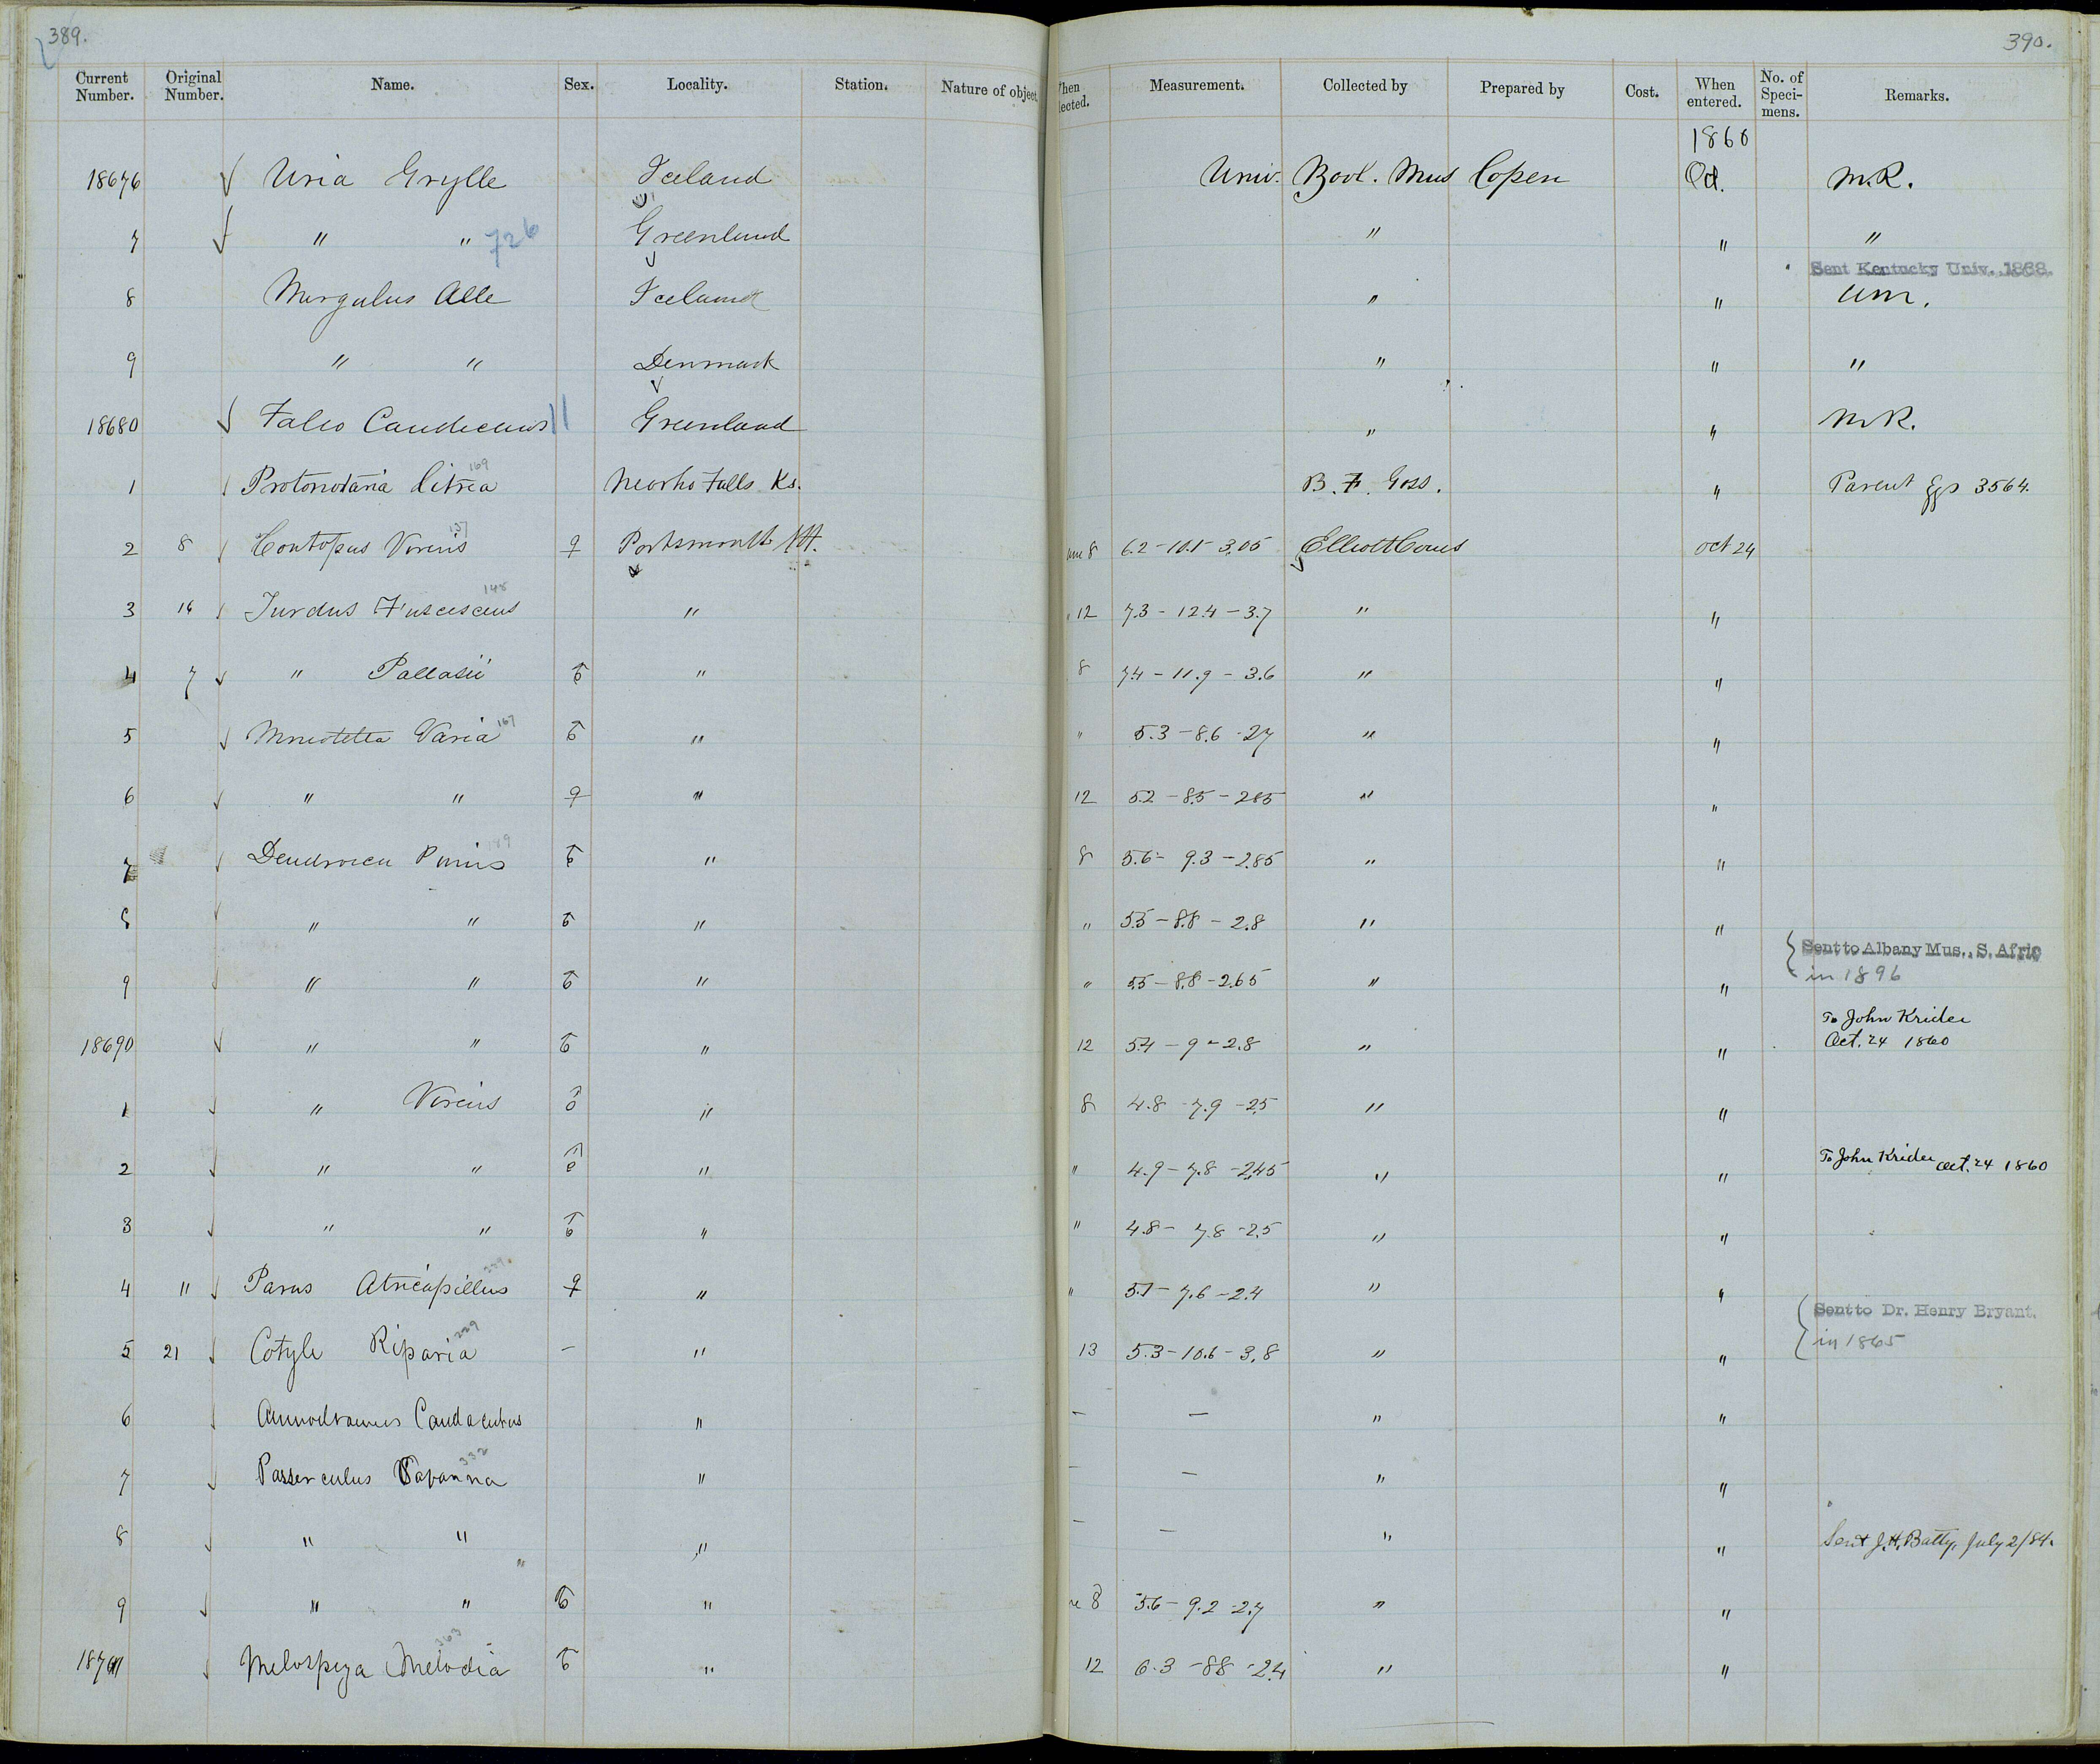 389.
390.
Current Number. Original Number. Name. Sex. Locality. Station. Nature of object. When Collected. Measurement. Collected by Prepared by Cost. When entered. No. of Specimens. Remarks.
1860
18676 Uria Grylle Iceland Univ. Zool. Mus Copen Oct. M.R.
7 " " 726 Greenland " " "
Sent Kentucky Univ. 1868.
8 Mergulus Alle Iceland " " Um.
9 " " Denmark " " "
18680 Falco Candicans 11 Greenland " " M R.
1 Protonotaria Citrea 169 Neosho Falls Ks. B. F. Goss. " Parent Eggs 3564.
2 8 Contopus Virens 137 ♀ Portsmouth NH. June 8 6.2-10.1-3.05 Elliott Coues Oct 24
3 16 Turdus Fuscescens 148 " " 12 7.3-12.4-3.7 " "
4 7 " Pallasii ♂ " 8 7.4-11.9-3.6 " "
5 Mniotilta Varia 167 ♂ " " 5.3-8.6-2.7 " "
6 " " ♀ " 12 5.2-8.5-2.85 " "
7 Dendroica Pinus 149 ♂ " 8 5.6-9.3-2.85 " "
8 " " ♂ " " 5.5-8.8-2.8 " "
Sent to Albany Mus., S. Afric
9 " " ♂ " " 5.5-8.8-2.65 " " in 1896
To John Krider
18690 " " ♂ " 12 5.4-9-2.8 " " Oct. 24 1860
1 " Virens ♂ " 8 4.8-7.9-2.5 " "
2 " " ♂ " " 4.9-7.8-2.45 " " To John Krider Oct. 24 1860
3 " " ♂ " " 4.8-7.8-2.5 " "
4 11 Parus Atricapillus ♀ " " 5.1-7.6-2.4 " "
Sent to Dr. Henry Bryant.
5 21 Cotyle Riparia 229 - " 13 5.3-10.6-3.8 " " in 1865
6 Ammodramus Caudacutus " - - " "
7 Passerculus Savanna 332 " - - " "
8 " " " - - " " Sent J. H. Batty, July 2/84.
9 " " ♂ " June 8 5.6-9.2-2.7 " "
Melospiza Melodia 363 ♂ " 12 6.3-8.8-2.4 " "